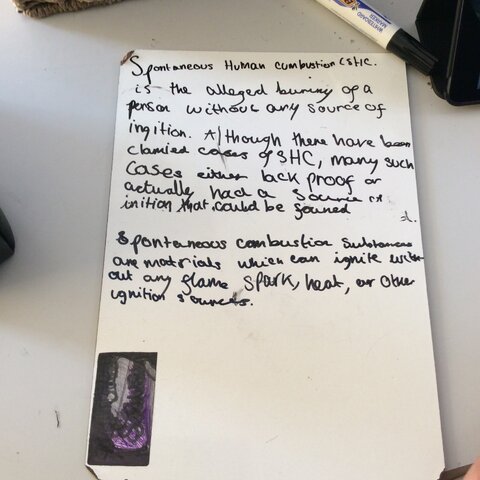 Spontaneous Human Cumbustion (SHC.
is the alleged burning of a
person without any source of
ingition. Although there have been
clamied cases of SHC, many such
cases either lack proof or
actually had a source of
inition that could be founed
Spontaneous combustion Substances
are materials which can ignite with
out any flame spark, heat, or other
ignition sources.
WHITEBOARD
MARKER